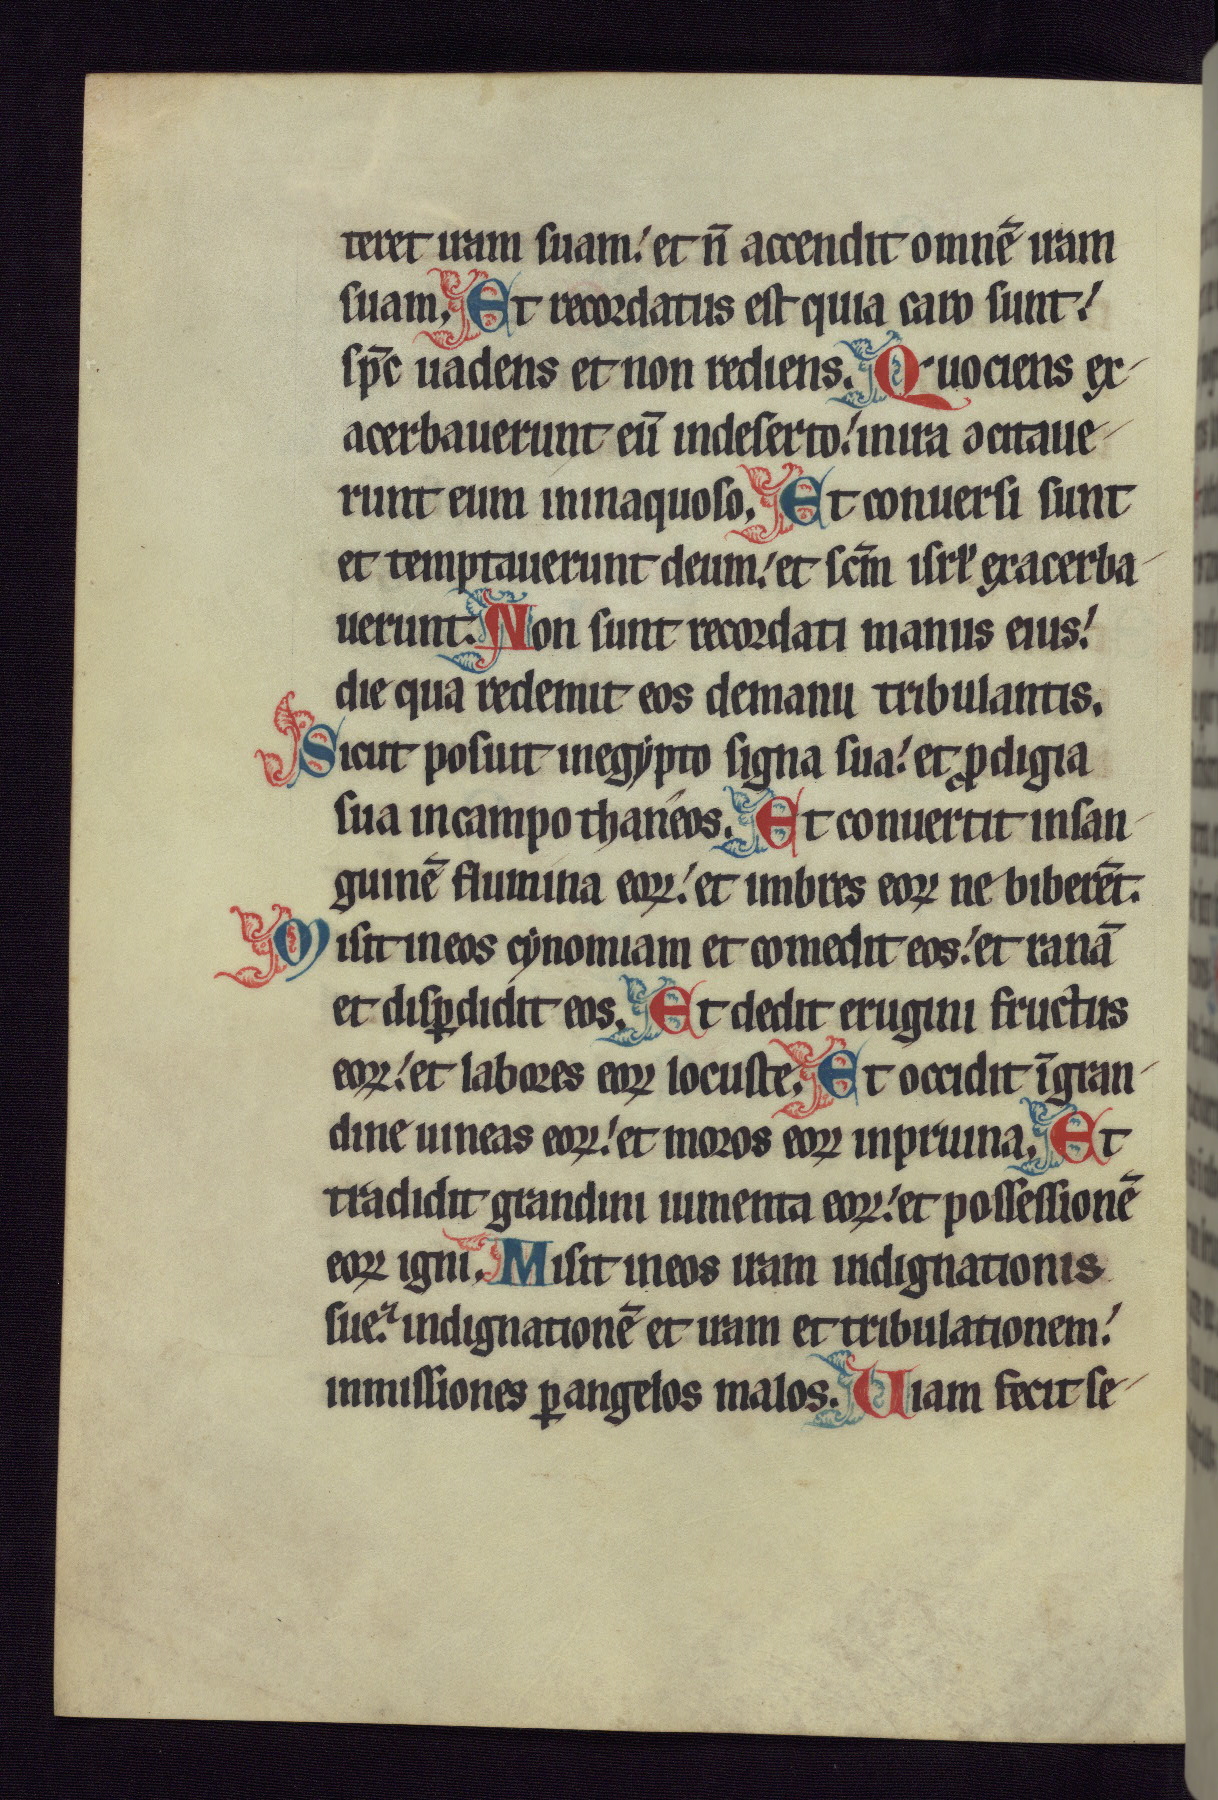 teret iram suam! et n̄ accendit omnē iram
suam. Et recordatus est quia caro sunt!
sp̄c uadens et non rediens. Quociens ex-
acerbauerunt eū indeserto! inira ↄcitaue-
runt eum ininaquoso. Et conuersi sunt
et temptauerunt deum! et sc̄m isrł exacerba-
uerunt. Non sunt recordati manus eius!
die qua redemit eos demanu tribulantis.
Sicut posuit inegypto signa sua! et ꝓdigia
sua incampo thaneos. Et conuertit insan-
guinē flumina eoꝝ! et imbres eoꝝ ne biberēt.
Misit ineos cynomiam et comedit eos! et ranā
et disꝑdidit eos. Et dedit erugini fructus
eoꝝ! et labores eoꝝ locuste. Et occidit īgran-
dine uineas eoꝝ! et moros eoꝝ inpruina. Et
tradidit grandini iumenta eoꝝ! et possessionē
eoꝝ igni. Misit ineos iram indignationis
sue! indignationē et iram et tribulationem!
inmissiones ꝑ angelos malos. Uiam fecit se-